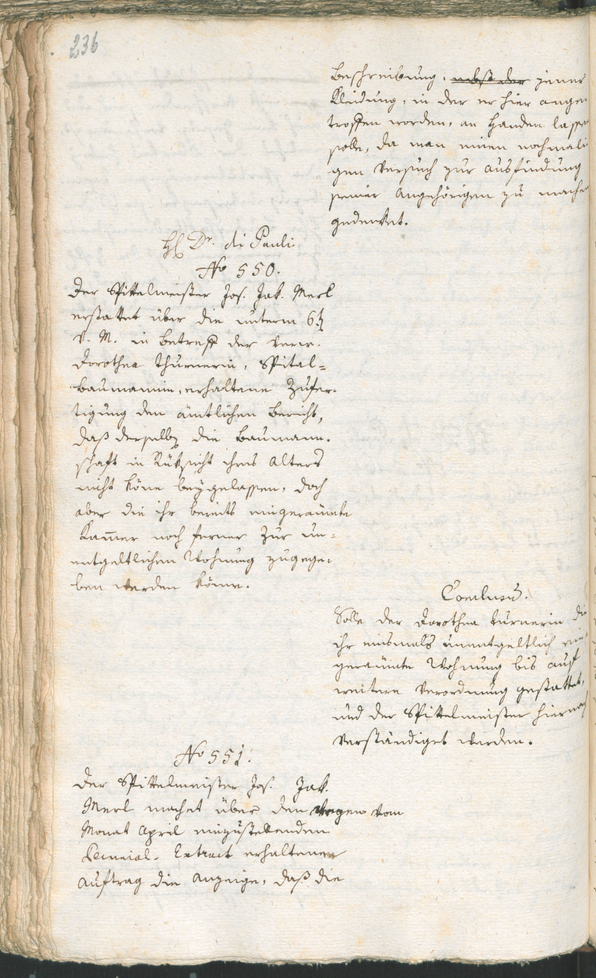 236
Beschreibung, nebst der jener
Kleidung, in der er hier ange-
troffen worden, an Handen lassen
solle, da man einen nochmali-
gen Versuch zur Ausfindung
seiner Angehörigen zu machen
gedenket.
H. Dr. di Pauli
No 550.
Der Spittelmeister Jos. Jak. Merl
erstattet über die unterm 6t
v. M. in Betreff der verw.
Dorothea Thurnerin, Spital-
baumannin, erhaltene Zufer-
tigung den amtlichen Bericht,
daß derselbe die Baumann-
schaft in Rüksicht ihres Alters
nicht könne beygelassen, doch
aber die ihr bereits eingeraumte
Kammer noch ferner zur un-
entgeltlichen Wohnung zugege-
ben werden könne.
Conclusum.
Solle der Dorothea Turnerin die
ihr einsmals unentgeltlich ein-
geraumte Wohnung bis auf
weitere Verordnung gestattet,
und der Spittelmeister hievon
verständiget werden.
No 551.
Der Spittelmeister Jos. Jak.
Merl machet über den wegen vom
Monat April einzustellenden
Extract erhaltenen
Auftrag die Anzeige, daß die